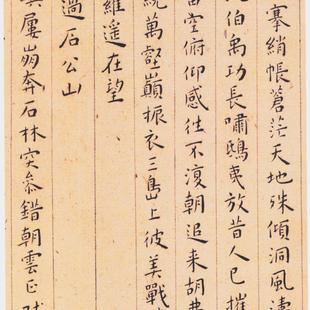 搴綃帳蒼茫天地殊傾洞風濤
伯禹功長嘯鴟夷放昔人已摧
空俯仰感往不復朝追来胡弗
統萬壑巔振衣三島上彼美戰
維遥在望
過石公山
屢崩奔石林突參錯朝雲正